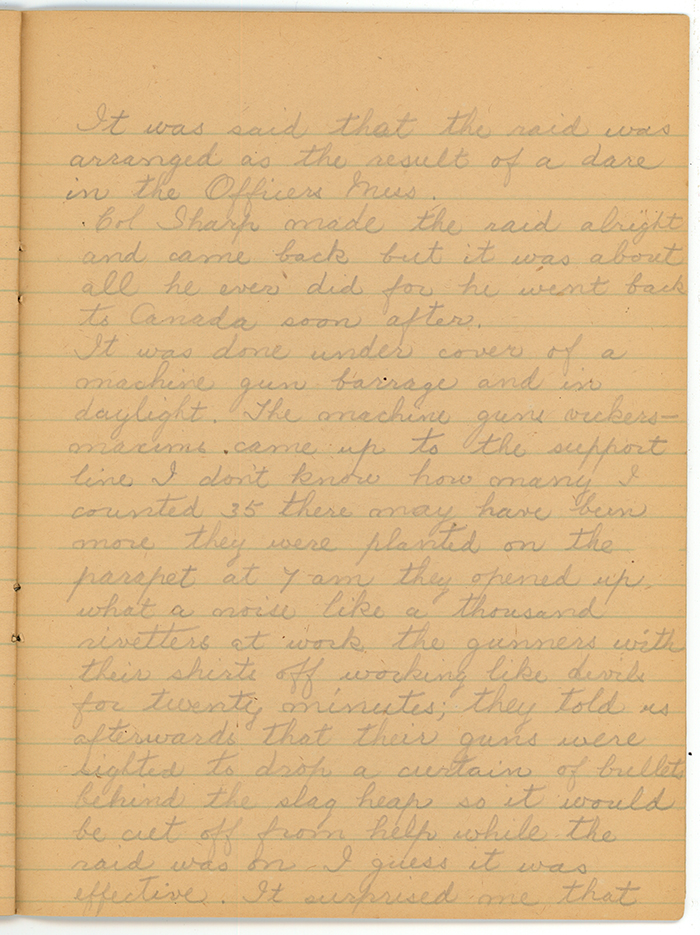 It was said that the raid was
arranged as the result of a dare
in the Officers Mess.
Col Sharp made the raid alright
and came back but it was about
all he ever did for he went back
to Canada soon after.
It was done under cover of a
machine gun barrage and in
daylight. The machine guns vickers-
maxims came up to the support
line I don't know how many I
counted 35 there may have been
more they were planted on the
parapet at 7 am they opened up,
what a noise like a thousand
rivetters at work the gunners with
their shirts off working like devils
for twenty minutes; they told us
afterwards that their guns were
sighted to drop a curtain of bullets
behind the slag heap so it would
be cut off from help while the
raid was on I guess it was
effective. It surprised me that